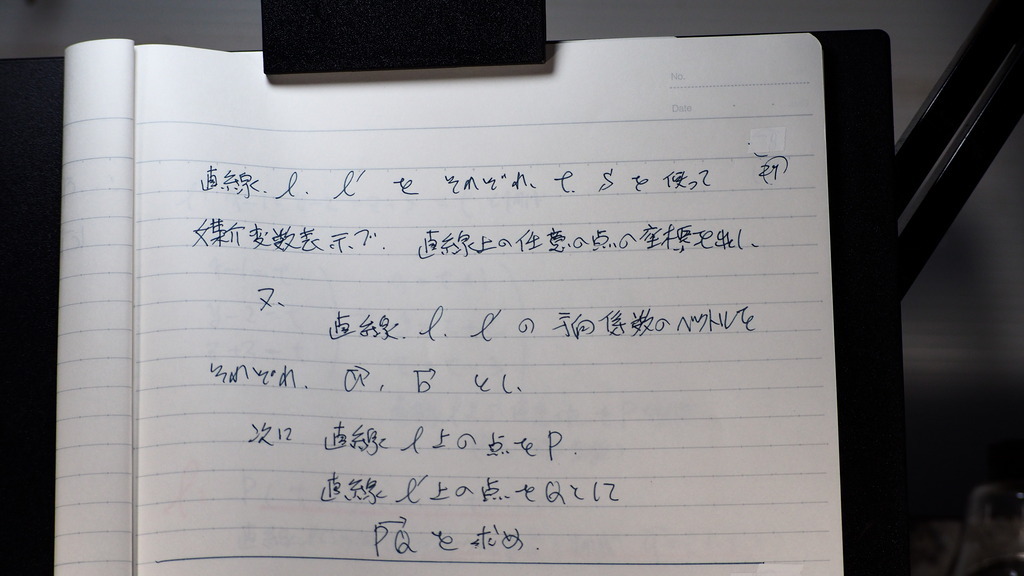 No.
Date
直線 l、l′ を それぞれ、t、s を 使って
媒介変数表示で、直線上の任意の点の座標を出し、
又、
直線 l、l′ の 方向係数のベクトルを
それぞれ、a→、b→ とし、
次に 直線 l 上の 点を P、
直線 l′ 上の 点を Qとして
PQ→ を 求め、